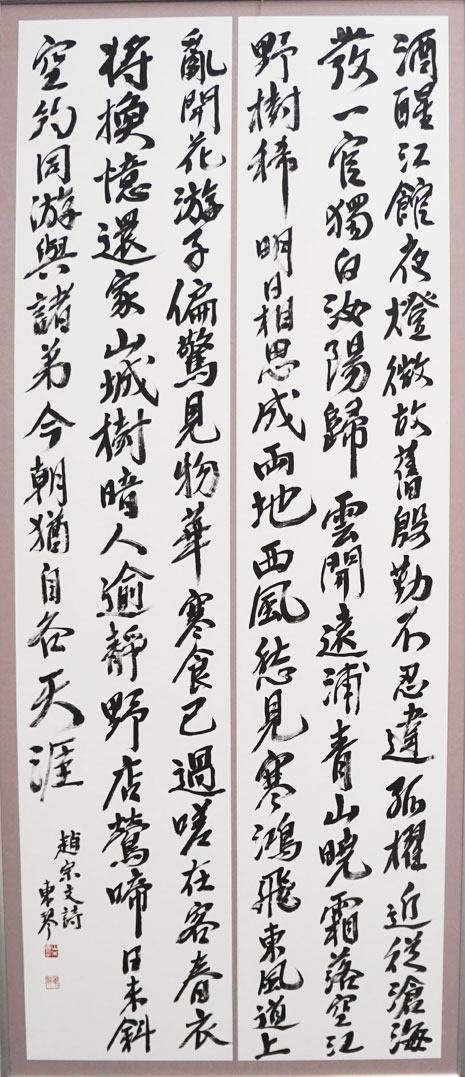 酒醒江館夜燈微故舊殷勤不忍違孤櫂近從滄海
發一官獨向汝陽歸雲開遠浦青山曉霜落空江
野樹稀明日相思成兩地西風愁見寒鴻飛東風道上
亂開花游子偏驚見物華寒食已過嗟在客春衣
將換憶還家山城樹暗人逾靜野店鶯啼日未斜
空約同游與諸弟今朝猶自各天涯
趙宗文詩
東琴